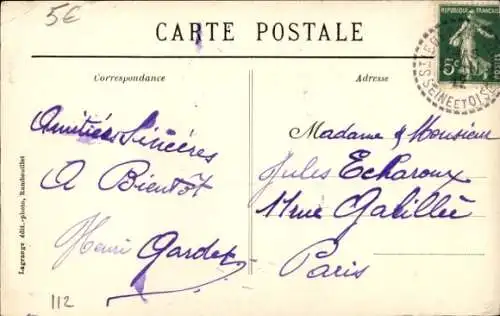 5€
CARTE POSTALE
REPUBLIQUE FRANÇAISE
5c
SEINE ET OISE
Correspondance
Adresse
Amitiés Sincères
A Bientôt
Henri Gardet
Madame & Monsieur
Jules Echaroux
11 rue Galillée
Paris
Lagrange édit.-photo, Rambouillet
112